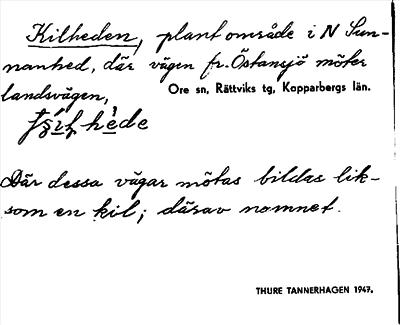 Kilheden, plant område i N Sun-
nanhed, där vägen fr. Östansjö möter
landsvägen,
Ore sn, Rättviks tg, Kopparbergs län.
hede
Där dessa vägar mötas bildas lik-
som en kil; därav namnet.
THURE TANNERHAGEN 1947.